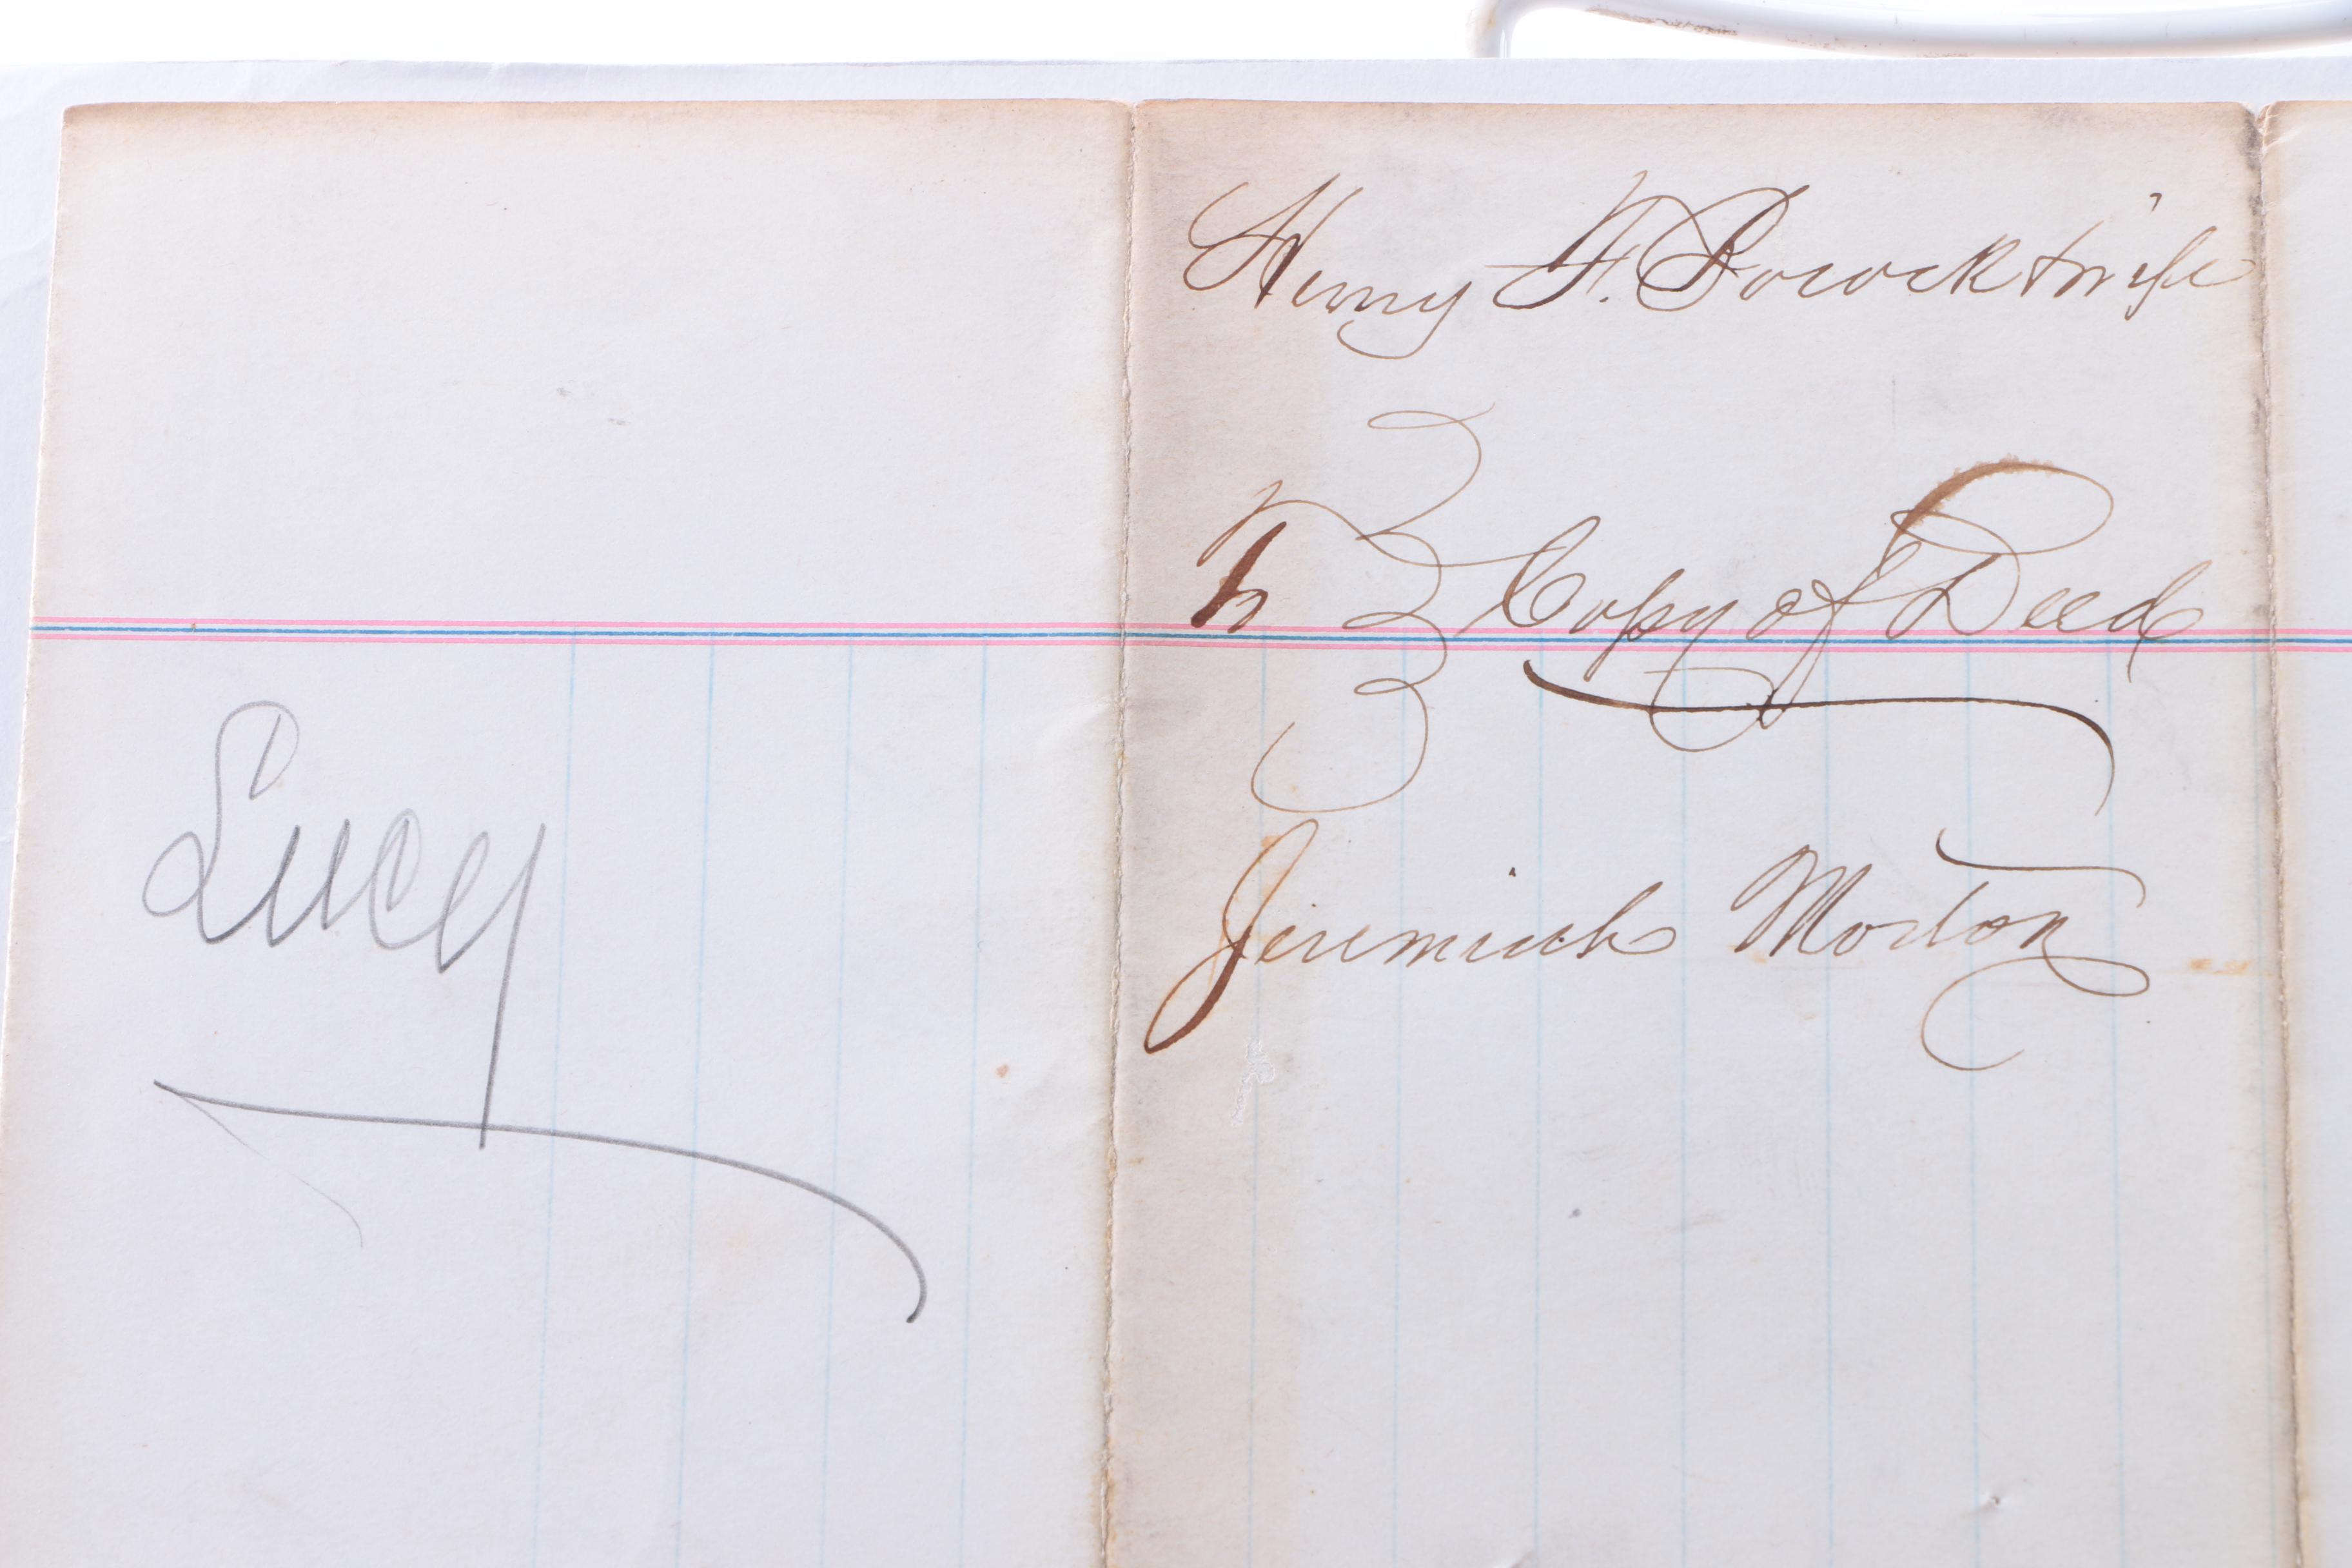 Lucy
Henry F. Bocock & wife
to } Copy of Deed
Jeremiah Morton